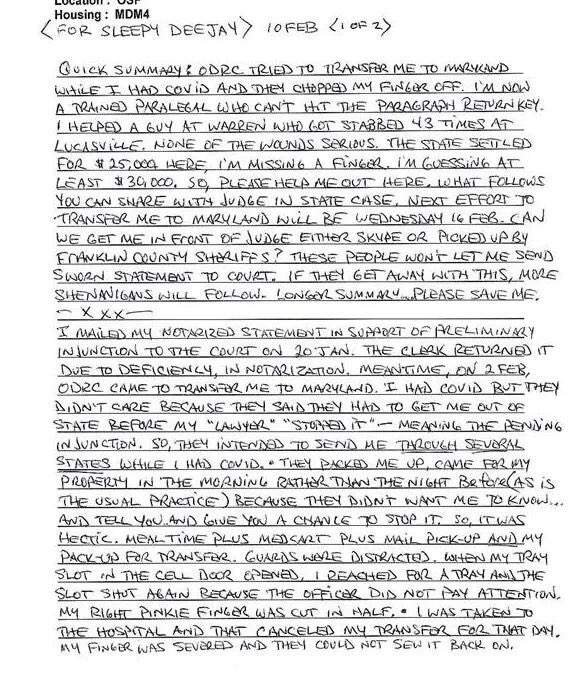 Location : OSP
Housing : MDM4
<FOR SLEEPY DEEJAY> 10 FEB <1 OF 2>
QUICK SUMMARY: ODRC TRIED TO TRANSFER ME TO MARYLAND
WHILE I HAD COVID AND THEY CHOPPED MY FINGER OFF. I'M NOW
A TRAINED PARALEGAL WHO CAN'T HIT THE PARAGRAPH RETURN KEY.
I HELPED A GUY AT WARREN WHO GOT STABBED 43 TIMES AT
LUCASVILLE. NONE OF THE WOUNDS SERIOUS. THE STATE SETTLED
FOR $25,000. HERE, I'M MISSING A FINGER. I'M GUESSING AT
LEAST $30,000. SO, PLEASE HELP ME OUT HERE. WHAT FOLLOWS
YOU CAN SHARE WITH JUDGE IN STATE CASE. NEXT EFFORT TO
TRANSFER ME TO MARYLAND WILL BE WEDNESDAY 16 FEB. CAN
WE GET ME IN FRONT OF JUDGE EITHER SKYPE OR PICKED UP BY
FRANKLIN COUNTY SHERIFFS? THESE PEOPLE WON'T LET ME SEND
SWORN STATEMENT TO COURT. IF THEY GET AWAY WITH THIS, MORE
SHENANIGANS WILL FOLLOW. LONGER SUMMARY... PLEASE SAVE ME.
- X XX -
I MAILED MY NOTARIZED STATEMENT IN SUPPORT OF PRELIMINARY
INJUNCTION TO THE COURT ON 20 JAN. THE CLERK RETURNED IT
DUE TO DEFICIENCY, IN NOTARIZATION. MEANTIME, ON 2 FEB,
ODRC CAME TO TRANSFER ME TO MARYLAND. I HAD COVID BUT THEY
DIDN'T CARE BECAUSE THEY SAID THEY HAD TO GET ME OUT OF
STATE BEFORE MY "LAWYER" "STOPPED IT" - MEANING THE PENDING
INJUNCTION. SO, THEY INTENDED TO SEND ME THROUGH SEVERAL
STATES WHILE I HAD COVID. • THEY PACKED ME UP, CAME FOR MY
PROPERTY IN THE MORNING RATHER THAN THE NIGHT BEFORE (AS IS
THE USUAL PRACTICE) BECAUSE THEY DIDN'T WANT ME TO KNOW...
AND TELL YOU. AND GIVE YOU A CHANCE TO STOP IT. SO, IT WAS
HECTIC. MEALTIME PLUS MEDCART PLUS MAIL PICK-UP AND MY
PACK-UP FOR TRANSFER. GUARDS WERE DISTRACTED. WHEN MY TRAY
SLOT IN THE CELL DOOR OPENED, I REACHED FOR A TRAY AND THE
SLOT SHUT AGAIN BECAUSE THE OFFICER DID NOT PAY ATTENTION.
MY RIGHT PINKIE FINGER WAS CUT IN HALF. • I WAS TAKEN TO
THE HOSPITAL AND THAT CANCELED MY TRANSFER FOR THAT DAY.
MY FINGER WAS SEVERED AND THEY COULD NOT SEW IT BACK ON.